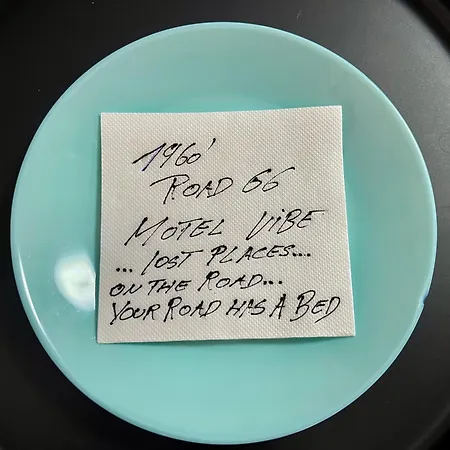 1960'
ROAD 66
MOTEL VIBE
... LOST PLACES...
ON THE ROAD...
YOUR ROAD HAS A BED